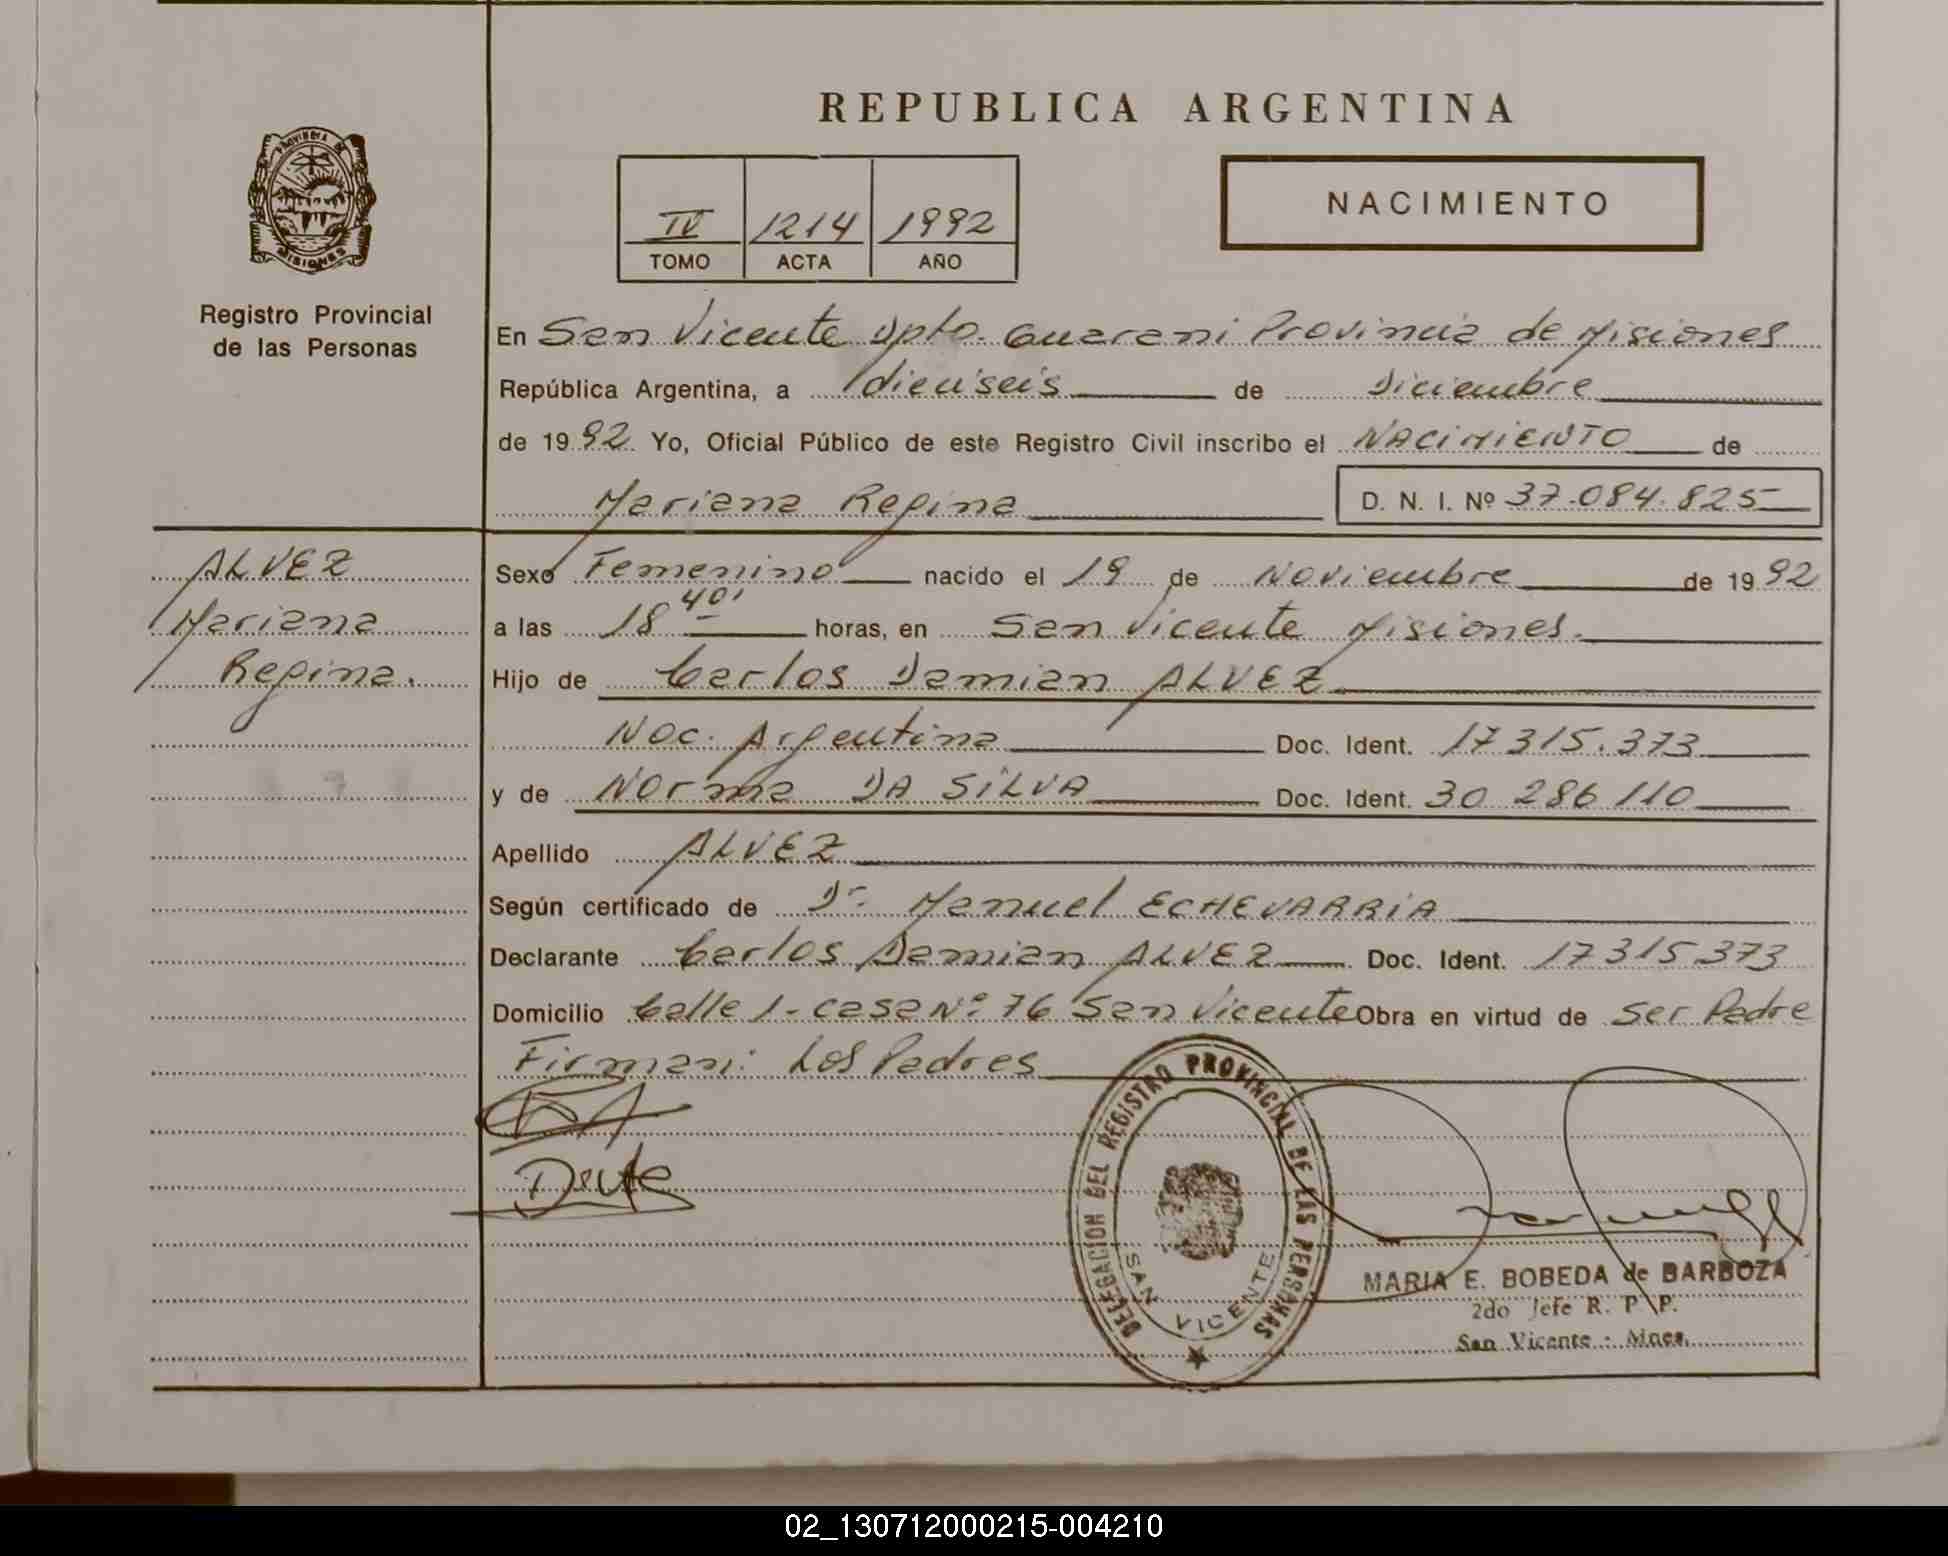 REPUBLICA ARGENTINA
PROVINCIA DE
MISIONES
Registro Provincial
de las Personas
IV 1214 1992
TOMO ACTA AÑO
NACIMIENTO
En San Vicente Dpto. Guarani Provincia de Misiones
República Argentina, a dieciseis de Diciembre
de 1992. Yo, Oficial Público de este Registro Civil inscribo el NACIMIENTO de
Mariana Regina D. N. I. Nº 37.084.825
ALVEZ
Mariana
Regina.
Sexo Femenino nacido el 19 de Noviembre de 1992
a las 18 40' horas, en San Vicente Misiones.
Hijo de Carlos Damian ALVEZ
Nac. Argentina Doc. Ident. 17315.373
y de Norma DA SILVA Doc. Ident. 30 286 110
Apellido ALVEZ
Según certificado de Dr. Manuel ECHEVARRIA
Declarante Carlos Damian ALVEZ Doc. Ident. 17315.373
Domicilio Calle 1- casa Nº 76 San Vicente Obra en virtud de Ser Padre
Firman: Los Padres
DELEGACION DEL REGISTRO PROVINCIAL DE LAS PERSONAS
SAN VICENTE
MARIA E. BOBEDA de BARBOZA
2do Jefe R. P. P.
San Vicente - Mnes.
02_130712000215-004210